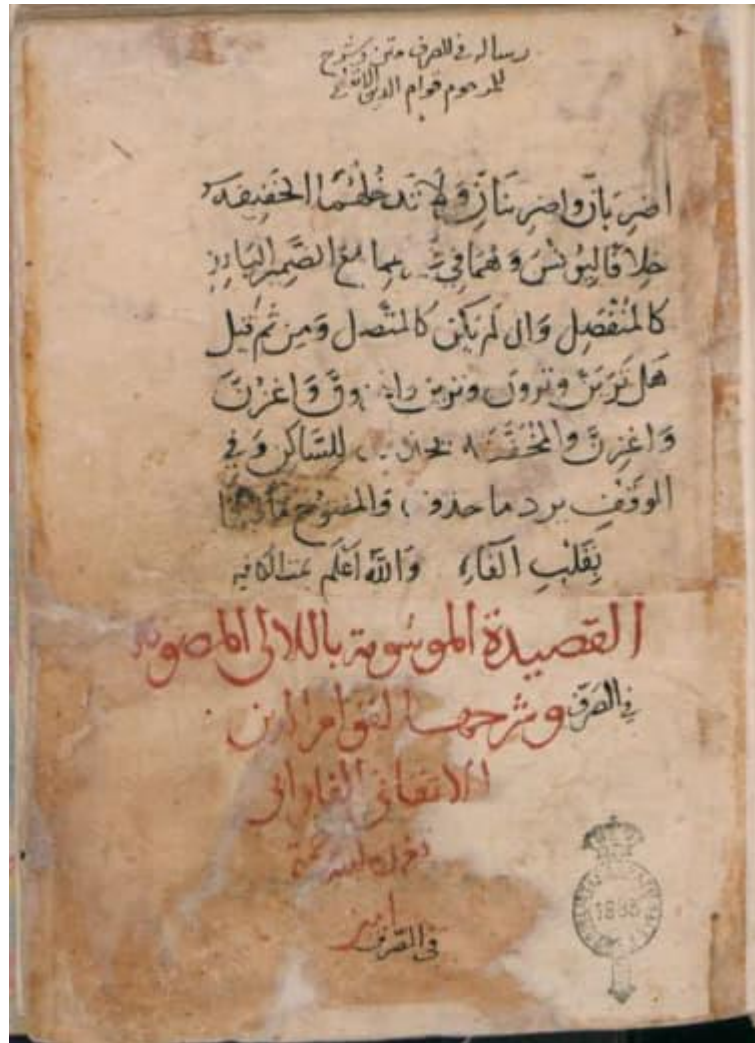 رسالة في الصرف متن وشرح
للمرحوم قوام الدين الاتقاني
اضرِبَانّ واضرِبنَانِّ وَلَا تدخُلُهُمَا الخَفِيفَه
خِلَافًا لِيُونُسَ وَهُمَا فِي مع الضَّمِيرِ البَارِزِ
كالمُنْفَصِلِ وَان لم يَكن كالمتَّصل وَمِن ثم قيل
هَل تَرَيَنَّ وترَوُنّ وترَيِنّ وَاغزُنَّ
وَاغزِنَّ وَالمُخَفَّفَة للسَّاكِن وَفي
الوَقْفِ يرد ما حذف وَالمفتوح مَا قبلها
تقلبِ الفًا وَالله أعْلَم الكافيه
القصيدة الموسومة باللالى المصونه
في الصرف وشرحها لقوام الدين
الاتقانى الفارابى
رحمة
امين
في الصرف
1885